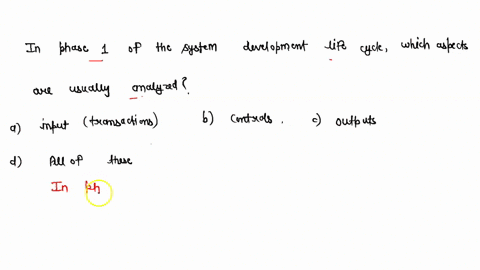 In phase 1 of the system development life cycle, which aspects
are usually analyzed?
a) input (transactions) b) controls. c) outputs
d) All of these
In ph